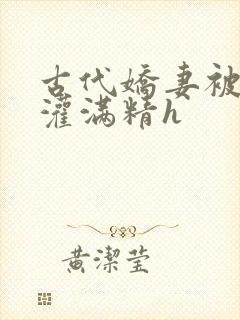 古代嬌妻被
灌滿精h
黃潔瑩